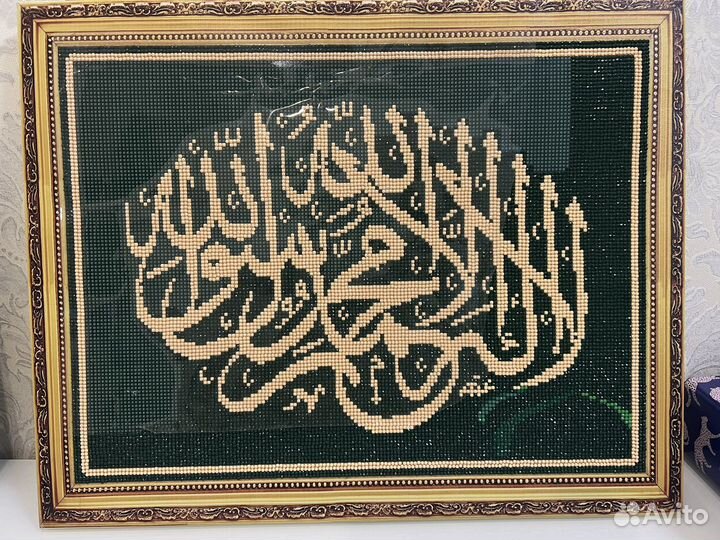 لا إله إلا الله محمد رسول الله
Avito